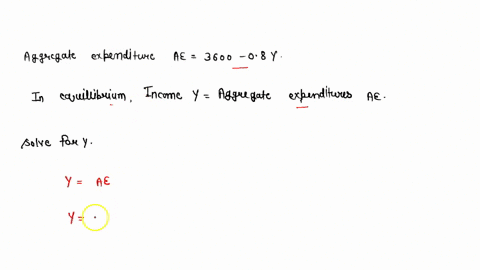 Aggregate expenditure AE = 3600 - 0.8 Y.
In equilibrium, Income Y = Aggregate expenditures AE.
Solve for y.
Y = AE
Y =